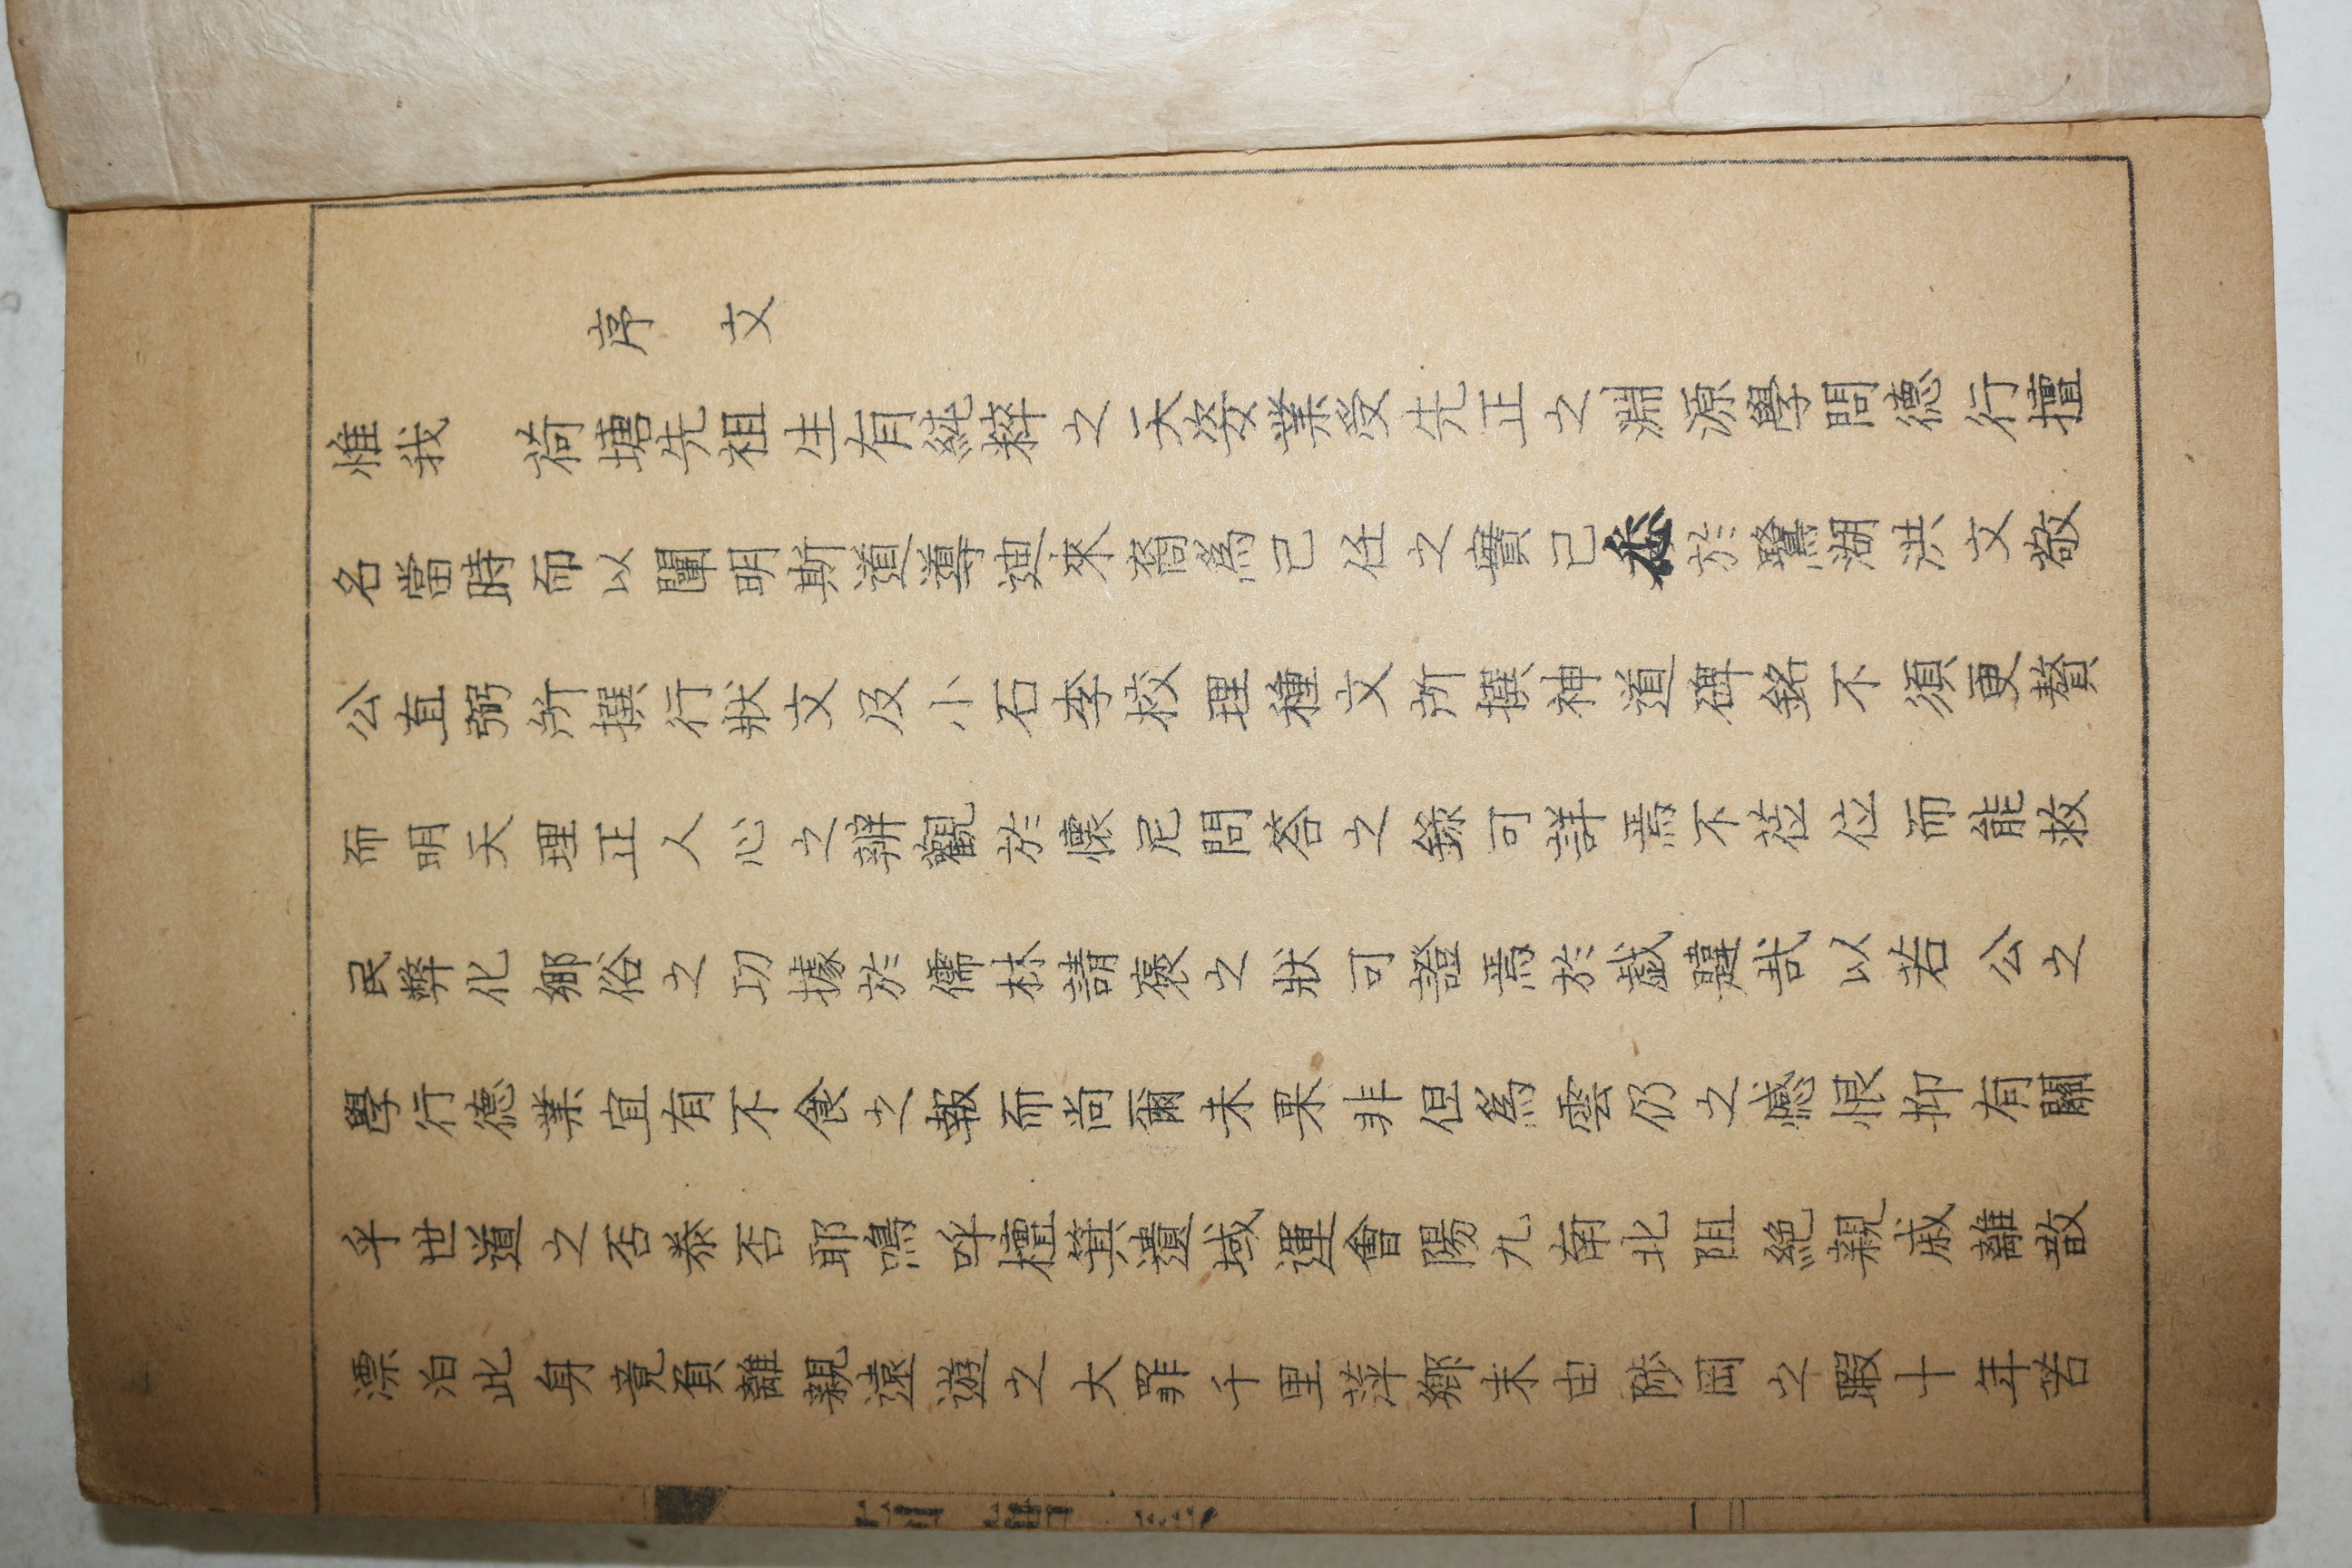 序文
惟我 荷塘先祖生有純粹之天姿業受先正之淵源學問德行擅
名當時而以闡明斯道導迪來裔爲己任之實已悉於鷺湖洪文敬
公直弼所撰行狀文及小石李校理種文所撰神道碑銘不須更贅
而明天理正人心之辨觀於懷尼問答之錄可詳焉不莅位而能救
民弊化鄉俗之功據於儒林請褒之狀可證焉於戱韙哉以若公之
學行德業宜有不食之報而尚爾未果非但爲雲仍之憾恨抑有關
乎世道之否泰否耶嗚呼檀箕遺域運會陽九南北阻絶親戚離散
漂泊此身竟負離親遠遊之大罪千里萍鄉未由陟岡之暇十年苦